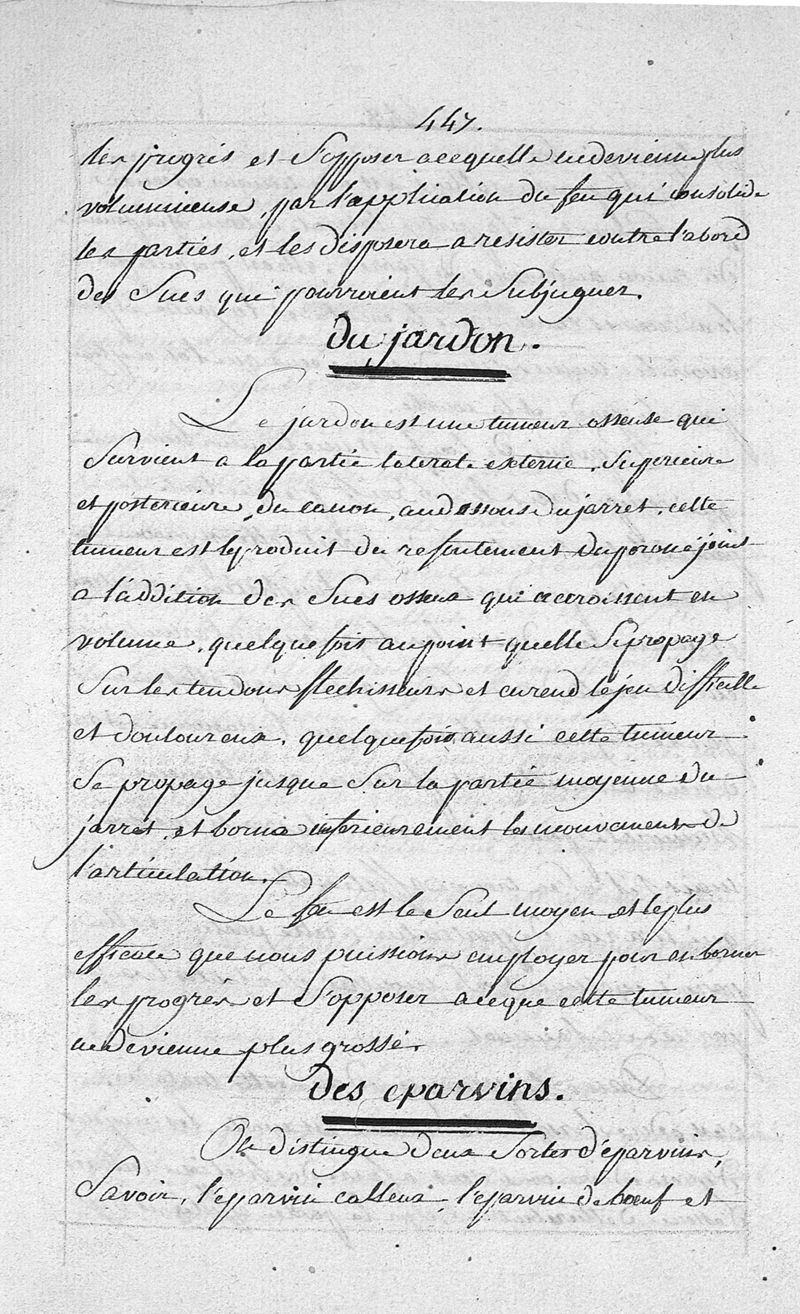 447.
les progrès et S'opposer a ce quelle ne devienne plus
volumineuse, par l'application du feu qui consolide
les parties, et les disposera a resister contre l'abord
des Sucs qui pourroient les Subjuguer.
du jardon.
Le jardon est une tumeur osseuse qui
Survient a la partie laterale externe, Superieure
et posterieure, du canon, au dessous du jarret, cette
tumeur est le produit du refoulement du peroné joint
a l'addition des Sucs osseux qui accroissent en
volume, quelque fois au point quelle Se propage
Sur les tendons flechisseurs et en rend le jeu difficille
et douloureux, quelquefois aussi cette tumeur
Se propage jusque Sur la partie moyenne du
jarret, et borne inferieurement les mouvements de
l'articulation.
Le feu est le Seul moyen et le plus
efficace que nous puissions employer pour en borner
les progrès et S'opposer a ce que cette tumeur
ne devienne plus grosse.
des eparvins.
On distingue deux Sortes d'éparvins,
Savoir, l'eparvin calleux, l'eparvin de bœuf et